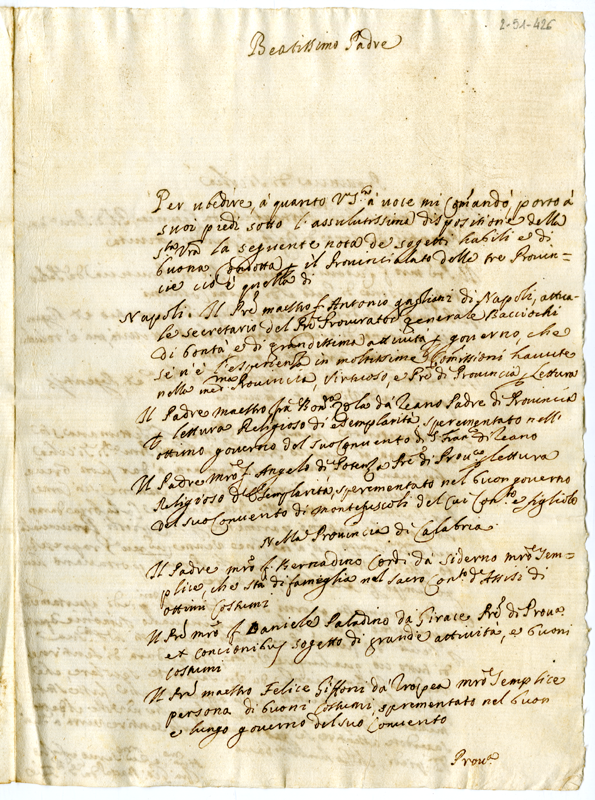 2-51-426
Beatissimo Padre
Per ubidire á quanto V. Stà. á voce mi comandó porto á
suoi piedi sotto l'assulutissima dispositione della
Stà. Vrã la seguente nota de sogetti habili e di
buona condotta p il Provincialato delle tre Provin-
cie ció é quella di
Napoli. Il Prẽ maestro f. Antonio di Napoli, attua-
le secretario del Prẽ Procuratore generale Baciochi
di bontá e di grandissima attivitá p governo, che
se n'é l'esperienza in moltissime Comissioni havute
nella med.ma Provincia, virtuoso, e Prẽ di Provincia p lettura
Il Padre maestro frà Bon.ra da Teano Padre di Provincia
p lettura Religioso di esemplaritá, sprementato nell'
ottimo governo del suo convento di S. Franc.o di Teano
Il Padre mrõ f. Angelo di Potenza Prẽ di Prov.a p lettura
Religioso d'Esemplaritá, sprementato nel buon governo
del suo Convento di Montefuscoli del cui Con.to é figliolo
Nella Provincia di Calabria
Il Padre mrõ f. Bernadino Cordi da Siderno mrõ Sem-
plice, che stá di fameglia nel Sacro Con.to d'Assisi di
ottimi costumi
Il Prẽ mrõ f. Daniele Paladino da Girace Prẽ di Prov.a
ex concionibus sogetto di grande attivitá, e buoni
costumi
Il Prẽ maestro Felice Giffoni da Tropea mrõ Semplice
persona di buoni costumi sprementato nel buon
e lungo governo del suo Convento
Prov.a